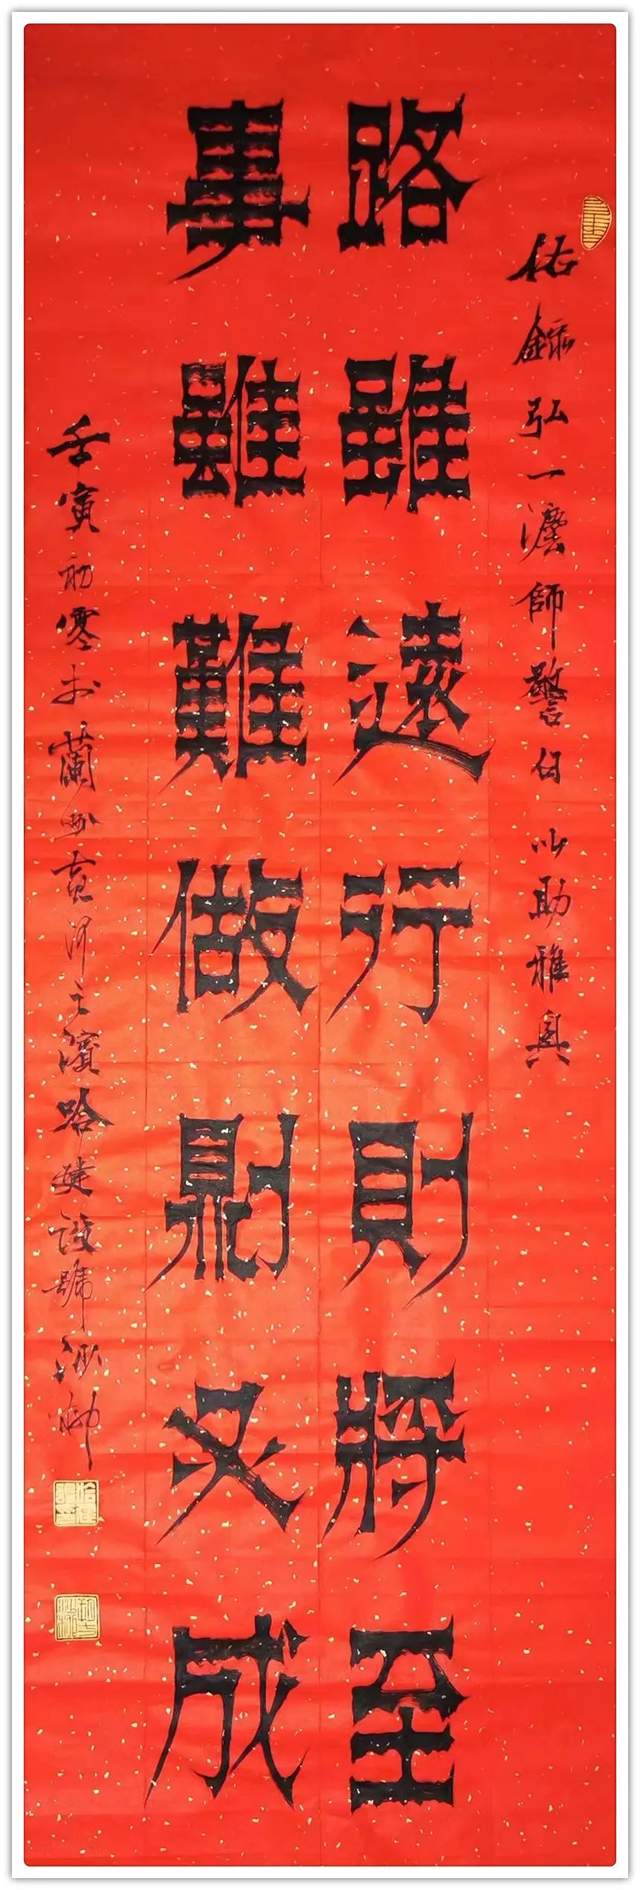 佑錄弘一灋師警句以助雅興
路雖遠行則將至
事雖難做則必成
壬寅初於蘭州黃河之濱哈建設號